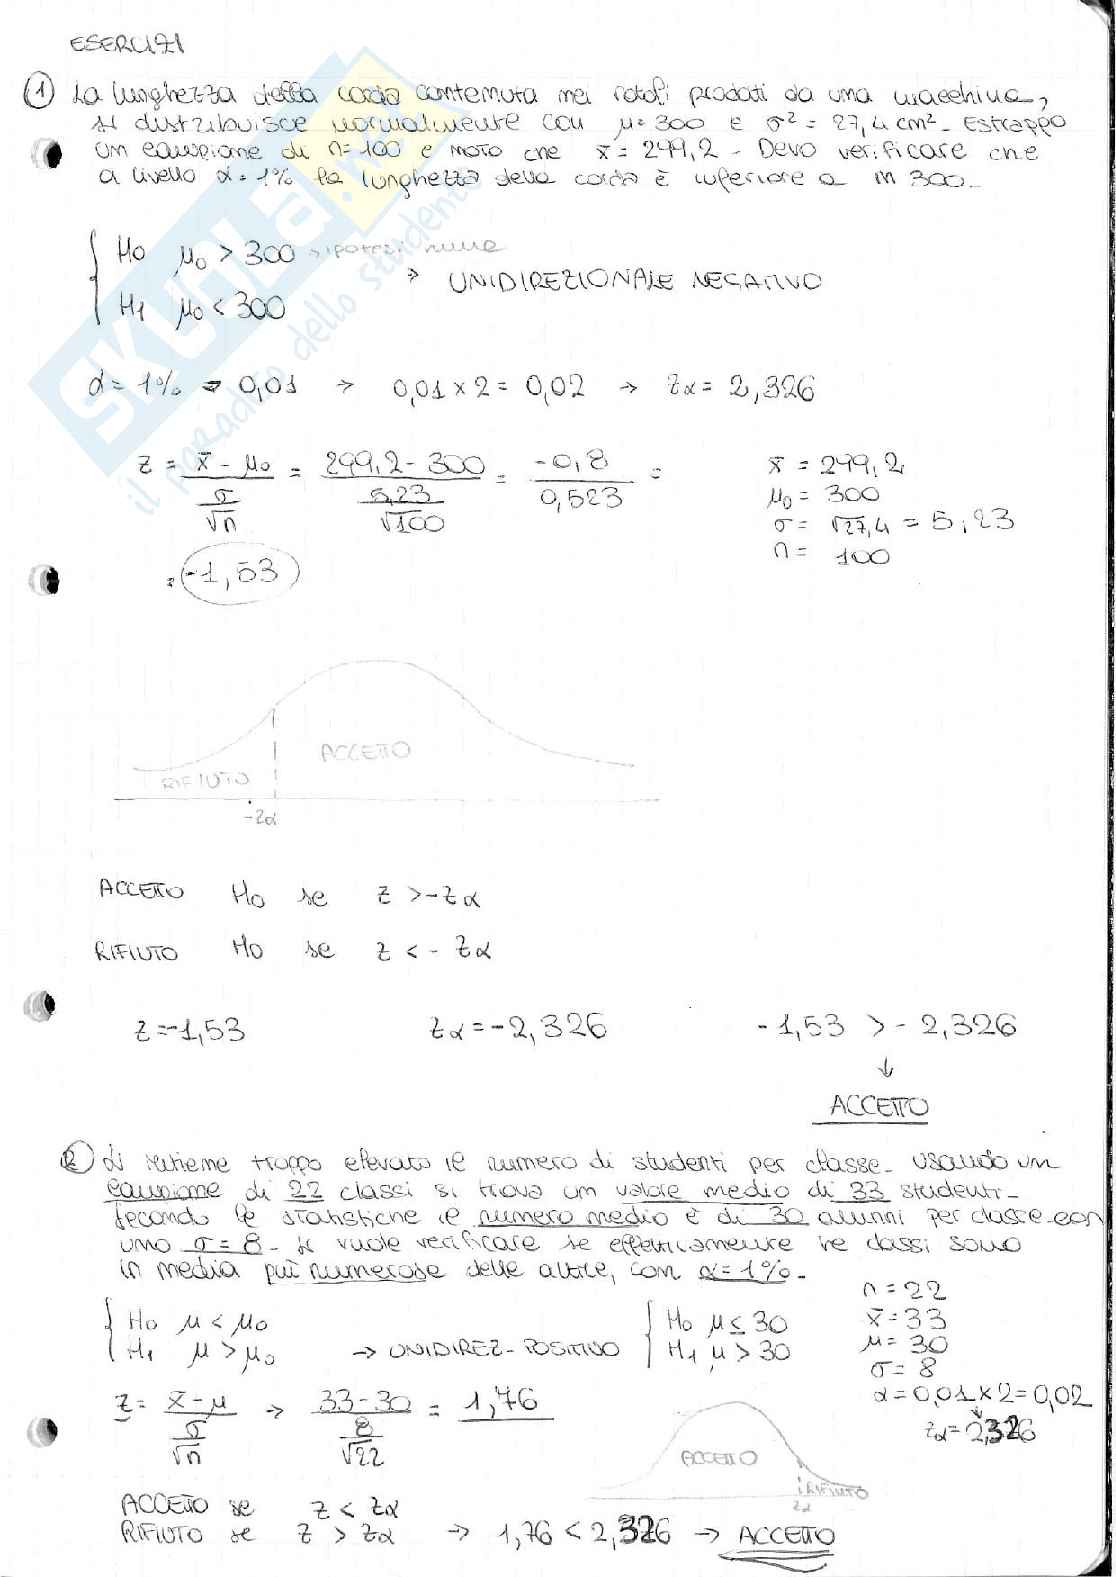 ESERCIZI
① La lunghezza della corda contenuta nei rotoli prodotti da una macchina,
si distribuisce normalmente con μ=300 e σ² = 27,4 cm². Estrappo
un campione di n=100 e noto che x̄ = 299,2 - Devo verificare che
a livello α=1% la lunghezza della corda è inferiore a m 300.
H0 μ0 > 300 → ipotesi nulla
→ UNIDIREZIONALE NEGATIVO
H1 μ0 < 300
α = 1% = 0,01 → 0,01 × 2 = 0,02 → zα = 2,326
z = x̄ - μ0 / σ/√n = 299,2 - 300 / 5,23/√100 = -0,8 / 0,523 =
= -1,53
x̄ = 299,2
μ0 = 300
σ = √27,4 = 5,23
n = 100
ACCETTO
RIFIUTO
-zα
ACCETTO H0 se z > -zα
RIFIUTO H0 se z < - zα
z=-1,53 zα = -2,326 -1,53 > - 2,326
↓
ACCETTO
② Si ritiene troppo elevato il numero di studenti per classe. Usando un
campione di 22 classi si trova un valore medio di 33 studenti.
Secondo le statistiche il numero medio è di 30 alunni per classe con
uno σ = 8. Si vuole verificare se effettivamente le classi sono
in media più numerose delle altre, con α=1%.
H0 μ < μ0
H1 μ > μ0 → UNIDIREZ. POSITIVO
H0 μ ≤ 30
H1 μ > 30
n = 22
x̄ = 33
μ = 30
σ = 8
α = 0,01 × 2 = 0,02
zα = 2,326
z = x̄ - μ / σ/√n → 33-30 / 8/√22 = 1,76
ACCETTO
RIFIUTO
zα
ACCETTO se z < zα
RIFIUTO se z > zα → 1,76 < 2,326 → ACCETTO
SKUOLA.net
il paradiso dello studente